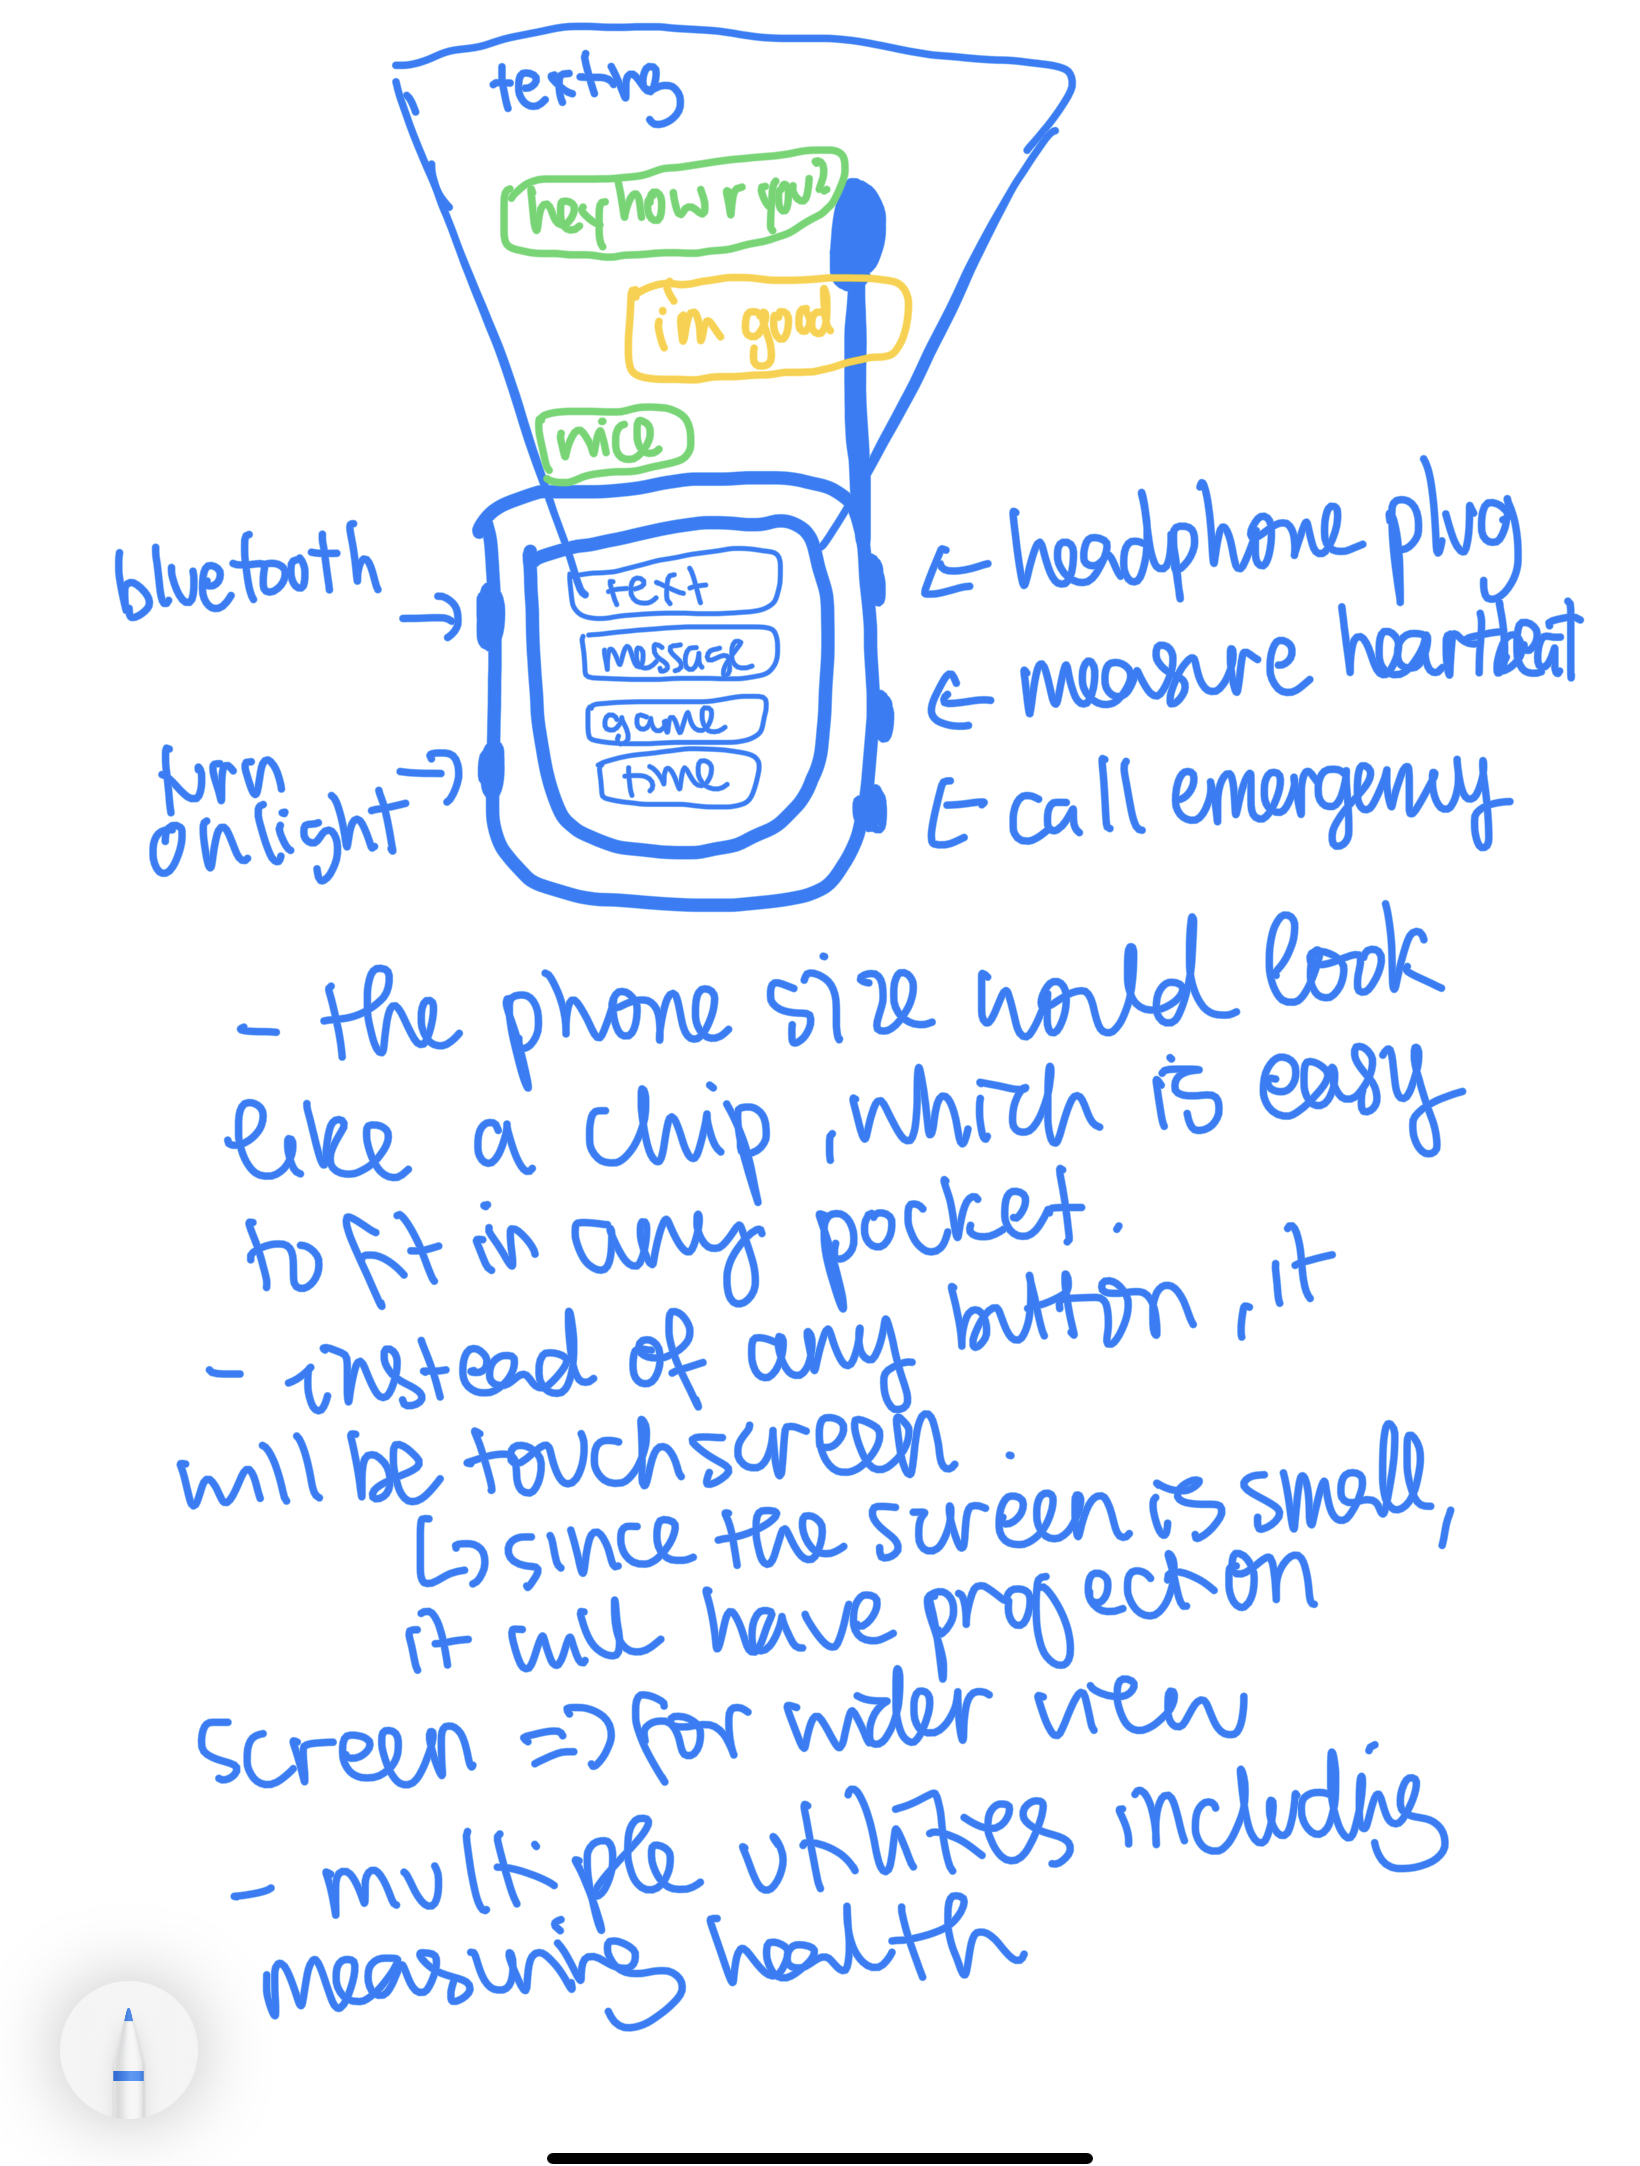 texting
hey how r you?
i'm good
nice
bluetooth
turn
on light
text
message
game
time
headphone plug
measure heartbeat
call emergency
- the phone size would look
like a chip, which is easy
to fit in any pocket.
- instead of any button, it
will be touchscreen.
↳ since the screen is small,
it will have projection
screen ⇒ for wider view
- multiple utilities including
measuring health